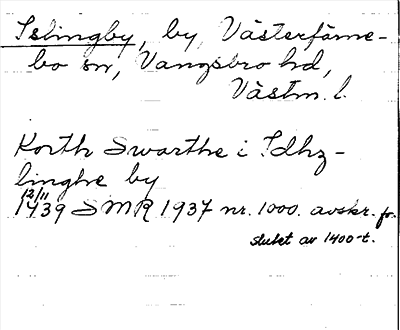 Islingby, by, Västerfärne-
bo sn, Vangsbro hd,
Västm. l.
Korth Swarthe i Idhz-
linghe by
12/11
1439 SMR 1937 nr. 1000. avskr. fr.
slutet av 1400-t.